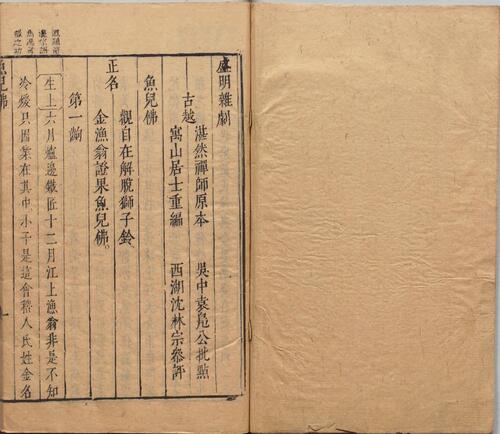 盛明雜劇
古越
湛然禪師原本
寓山居士重編
吳中袁鳧公批點
西湖沈林宗叅評
魚兒佛
正名
觀自在解脫獅子鈴
金漁翁證果魚兒佛。
第一齣
生上六月爐邊鐵匠十二月江上漁翁非是不知
冷煖只因業在其中小子是這會稽人氏姓金名
魚兒佛